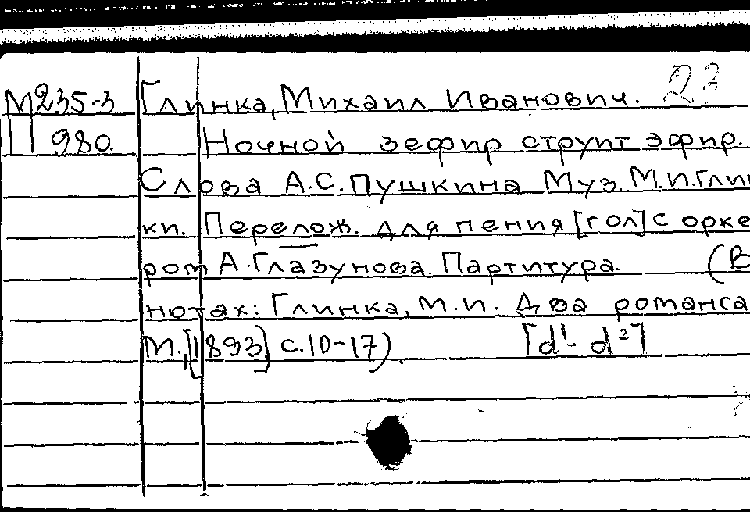 М235-3 Глинка, Михаил Иванович. 23
П 980 Ночной зефир струит эфир.
Слова А.С. Пушкина Муз. М.И. Глин
ки. Перелож. для пения [гол] с орке
ром А. Глазунова Партитура. (В
нотах: Глинка, М.И. Два романса
М., [1893] с. 10-17) [d¹- d²]